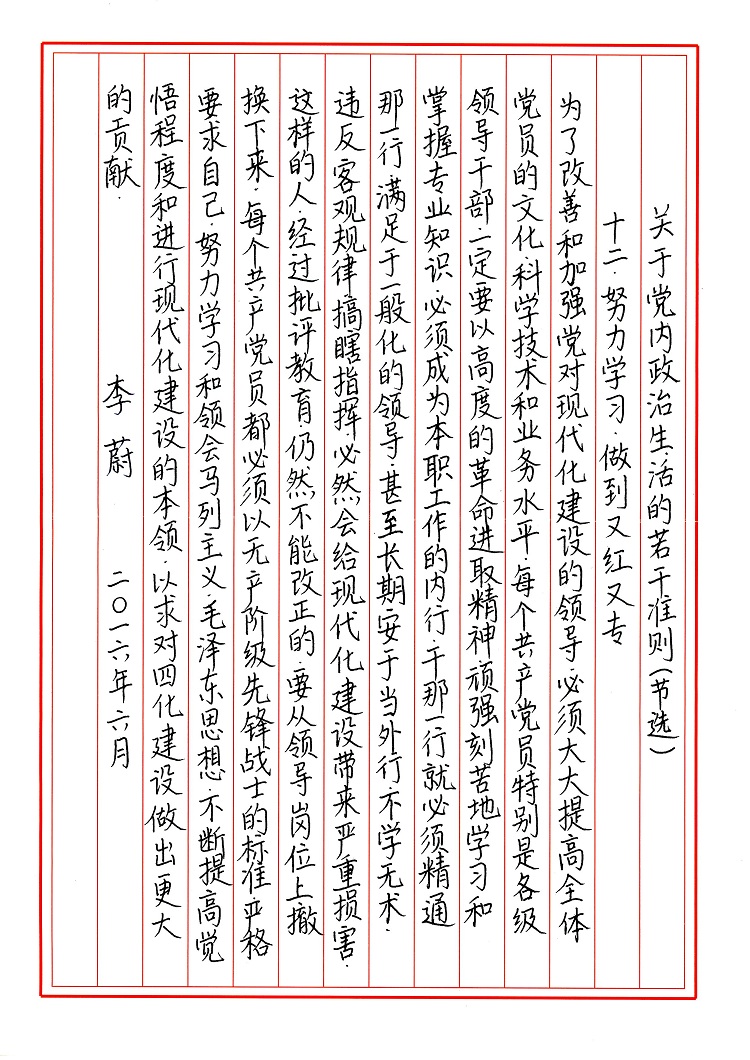 关于党内政治生活的若干准则(节选)
十二.努力学习.做到又红又专
为了改善和加强党对现代化建设的领导.必须大大提高全体
党员的文化.科学技术和业务水平.每个共产党员特别是各级
领导干部.一定要以高度的革命进取精神顽强刻苦地学习和
掌握专业知识.必须成为本职工作的内行.干那一行就必须精通
那一行.满足于一般化的领导.甚至长期安于当外行.不学无术.
违反客观规律.搞瞎指挥.必然会给现代化建设带来严重损害.
这样的人.经过批评教育.仍然不能改正的.要从领导岗位上撤
换下来.每个共产党员都必须以无产阶级先锋战士的标准严格
要求自己.努力学习和领会马列主义.毛泽东思想.不断提高觉
悟程度和进行现代化建设的本领.以求对四化建设做出更大
的贡献.
李蔚 二〇一六年六月